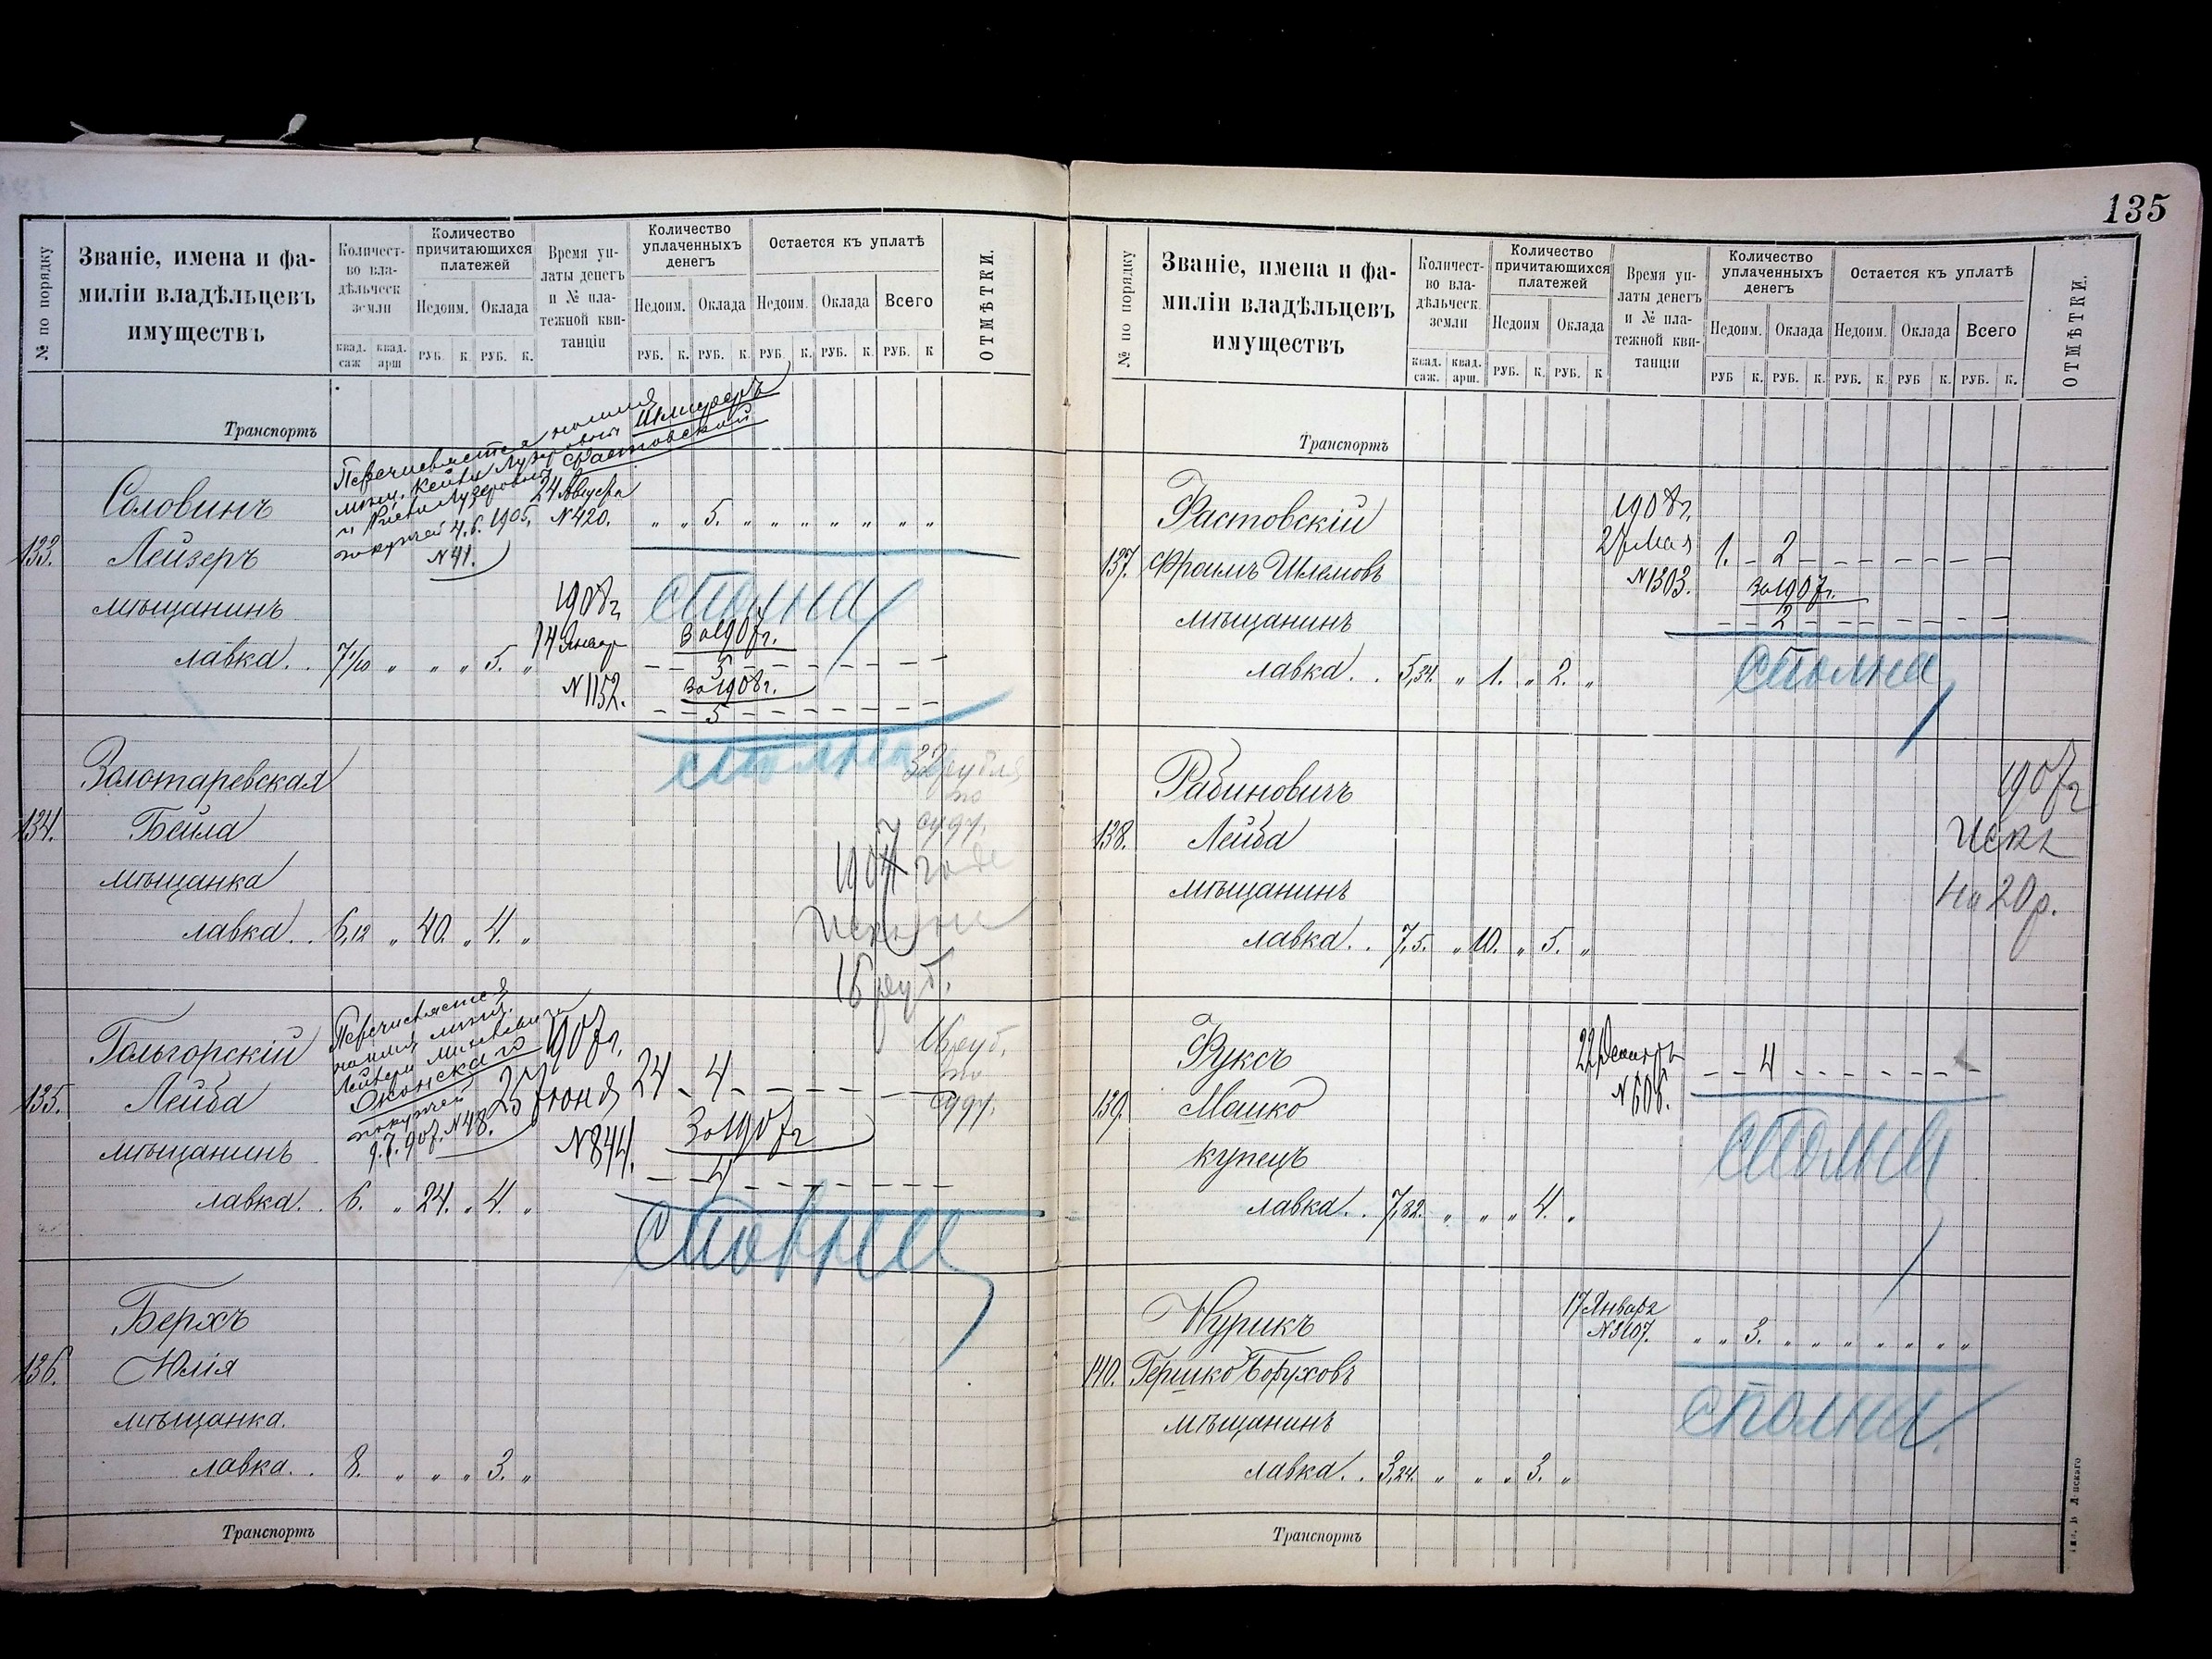 135
№ по порядку
Званіе, имена и фа-
миліи владѣльцевъ
имуществъ
Количест-
во вла-
дѣльческ
земли
квад. саж квад. арш
Количество
причитающихся
платежей
Недоим. Оклада
РУБ. К. РУБ. К.
Время уп-
латы денегъ
и № пла-
тежной кви-
танціи
Количество
уплаченныхъ
денегъ
Недоим. Оклада
РУБ. К. РУБ. К.
Остается къ уплатѣ
Недоим. Оклада Всего
РУБ. К. РУБ. К. РУБ. К
ОТМѢТКИ.
Транспортъ
Перечисляется на имя
мѣщ. Кейны Лузеровны Шмигеръ
и Лузеровны Фастовской
покупчей 4. 6. 1905,
№ 41.
133.
Соловинъ
Лейзеръ
мѣщанинъ
лавка . . 7 1/10 „ „ „ 5. „
24 Августа
№ 420. „ „ 5. „ „ „ „ „ „ „ „
сполна
1908 г.
14 Январ
№ 1152.
За 1907 г.
5
За 1908 г.
5
сполна
134.
Золотаревская
Бейла
мѣщанка
лавка . . 6,12 „ 40. „ 4. „
32 рубля
по
суду.
1907 годе
16 руб.
135.
Гольгорскій
Лейба
мѣщанинъ
лавка. . 6. „ 24. „ 4. „
Перечисляется
на имя мѣщ.
покупчей
9. 7. 907. № 48.
1907 г.
25 Іюня
№ 844.
24 - 4 -
За 1907 г
4
16 руб.
по
суду.
сполна
136.
Берхъ
Юлія
мѣщанка.
лавка. . 8. „ „ „ 3. „
Транспортъ
№ по порядку
Званіе, имена и фа-
миліи владѣльцевъ
имуществъ
Количест-
во вла-
дѣльческ.
земли
квад. саж. квад. арш.
Количество
причитающихся
платежей
Недоим Оклада
РУБ. К. РУБ. К.
Время уп-
латы денегъ
и № пла-
тежной кви-
танціи
Количество
уплаченныхъ
денегъ
Недоим. Оклада
РУБ К. РУБ. К.
Остается къ уплатѣ
Недоим. Оклада Всего
РУБ. К. РУБ К. РУБ. К.
ОТМѢТКИ.
Транспортъ
137.
Фастовскій
Фроимъ Шлемовъ
мѣщанинъ
лавка . . 5,34. „ 1. „ 2. „
1908 г.
27 Мая
№ 1303.
1. - 2
За 1907 г.
2
сполна
138.
Рабиновичъ
Лейба
мѣщанинъ
лавка . . 7,5. „ 10. „ 5. „
1907 г
Искъ
на 20 р.
139.
Фуксъ
Мошко
купецъ
лавка . . 7,32. „ „ „ 4. „
22 Декабрь
№ 606.
4
сполна
140.
Чурикъ
Гершко Боруховъ
мѣщанинъ
лавка . . 3,24. „ „ „ 3. „
17 Января
№ 3107. „ „ 3. „ „ „ „ „ „ „ „
сполна
Транспортъ